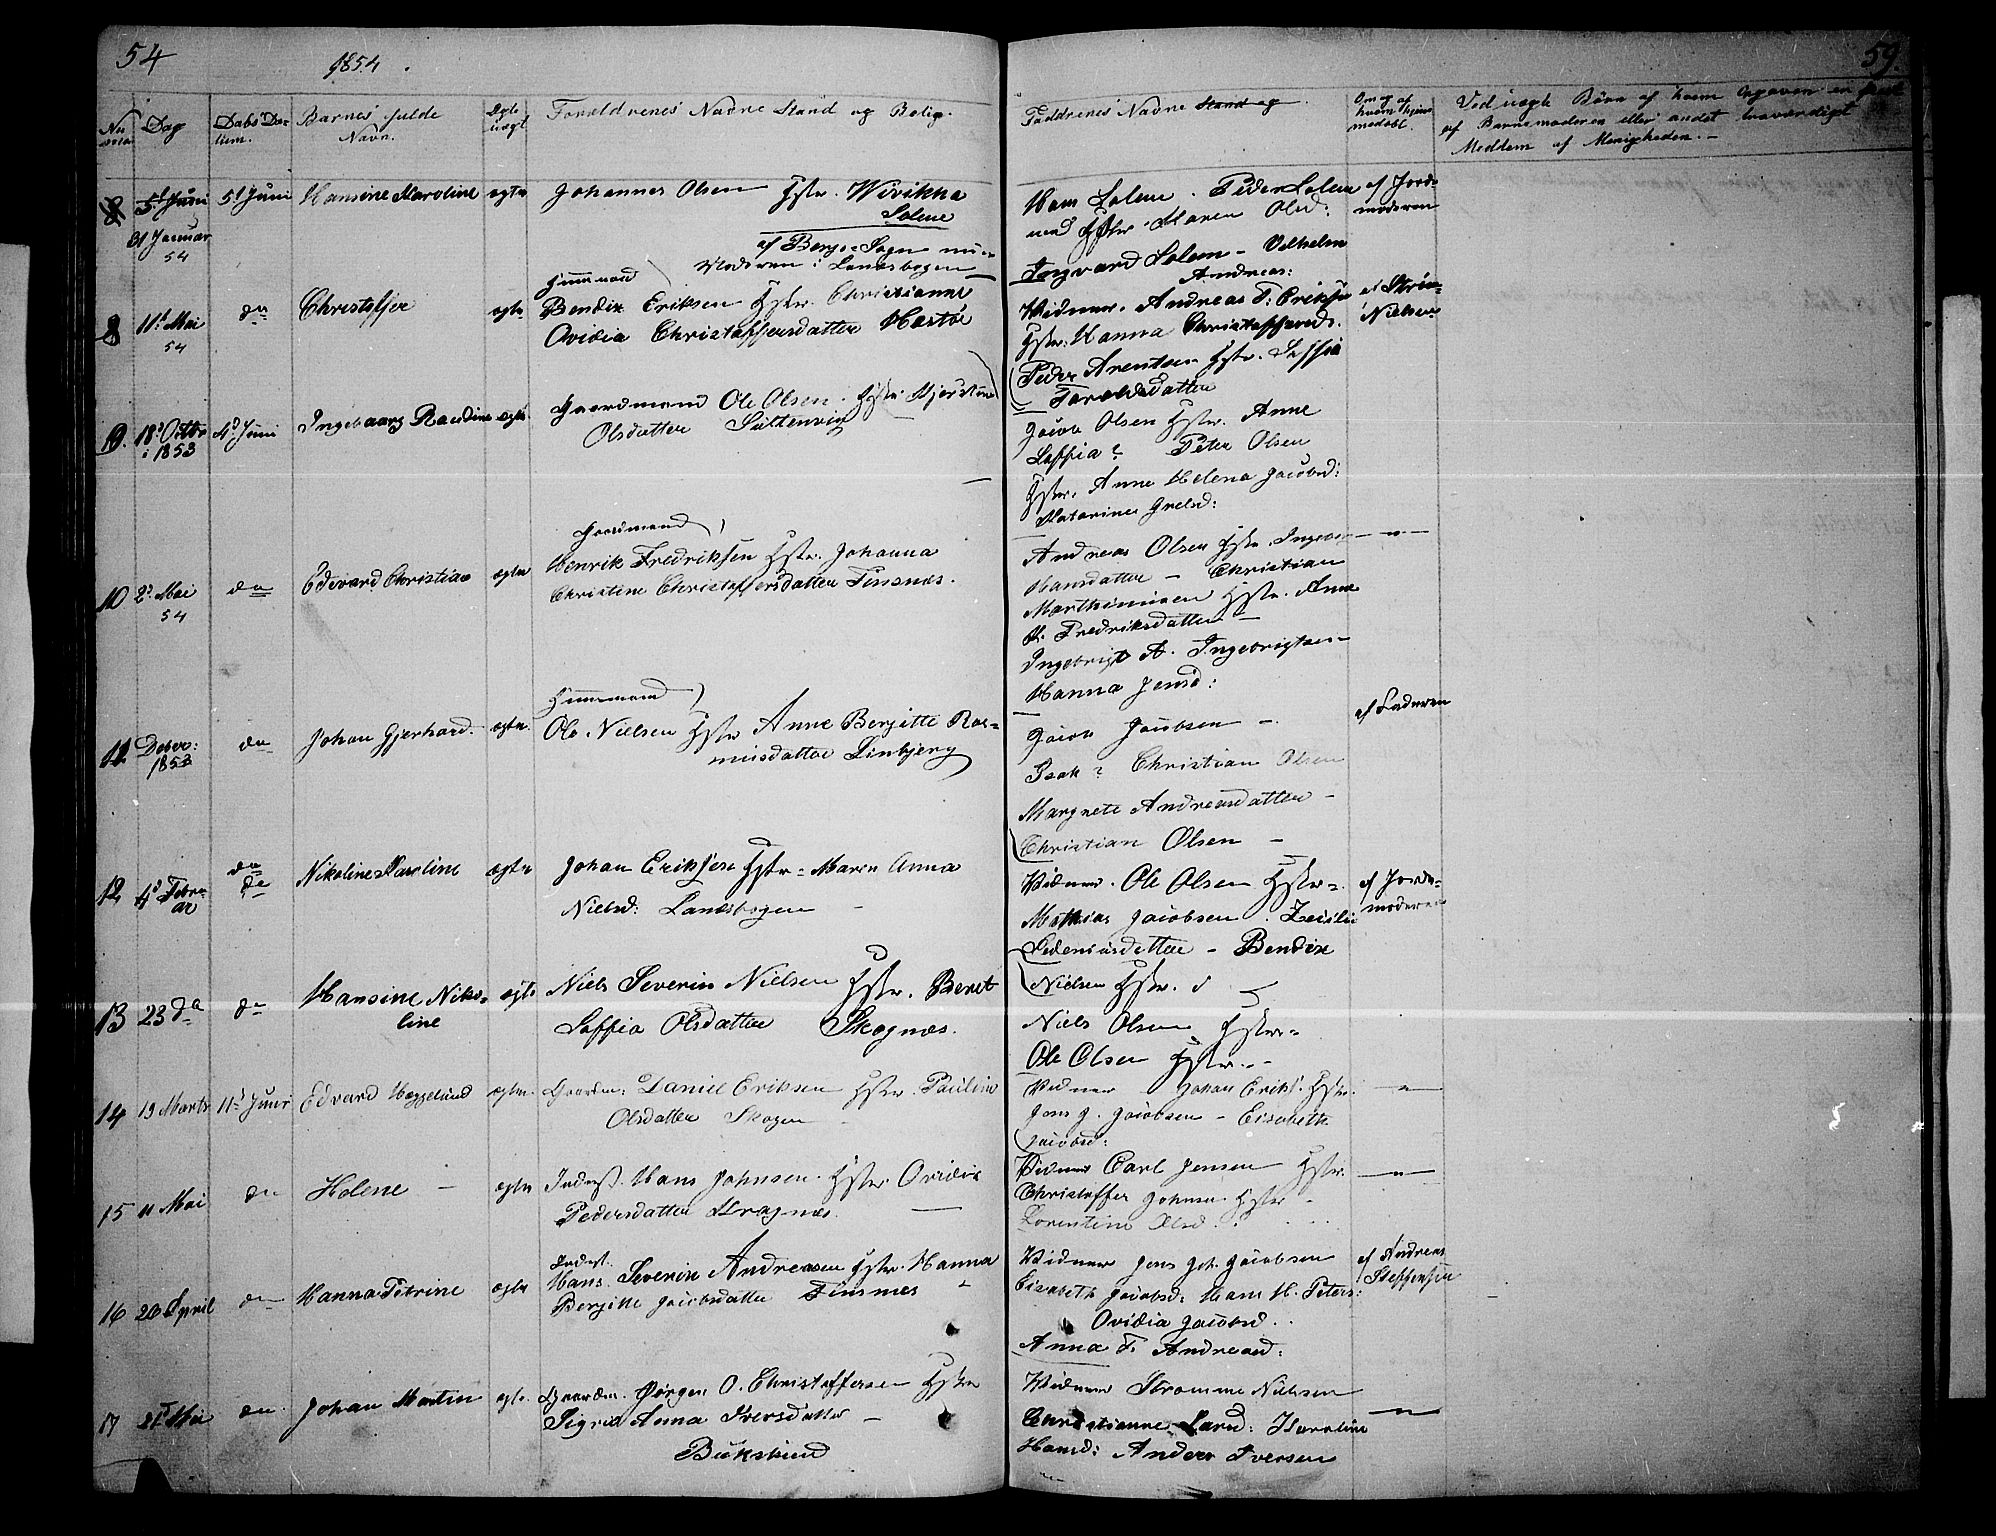 54
1854.
59.
No
Dag
Daabs Da-
tum.
Barnes fulde
Navn.
Ægte
uægt
Forældrenes Navne Stand og Bolig.
Faddrenes Navne Stand og
Om og af
hvem hjem
medøbt.
Ved uægte Børn af hvem Opgaven er
af Barnemoderen eller andet troværdigt
Medlem af Menigheden. —
8 5t Juni 5t Juni Hansine Karoline ægte Johannes Olsen Hstr. Wivikka
31 Januar
54
Solene
af Bergs Sogn nu
Moderen i Landsbogen
Hans Solem. Peder Solem
med Hstr Maren Olsd:
Ingvard Solem - Vilhelm
Andreas:
af Jord-
moderen
8 11t Mai
54
do Christoffer ægte
Huusmand
Bendix Eriksen Hstr. Christianne
Ovidia Christoffersdatter Hestøe
Vidner. Andreas F: Eriksen
Hstr: Hanna Christoffersd.
Peder Arentsen Hstr. Soffia
Taraldsdatter
af Strøm
Nielsen
9. 18d Octbr
i 1853
4d Juni Ingebaarg Raudine ægte Gaardmand Ole Olsen. Hstr Kjerstine
Olsdatter Sultenvig
Jacob Olsen Hstr. Anne
Soffia? Peter Olsen
Hstr. Anne Helena Jacobsd:
Katarine Grelsd:
10 2d Mai
54
do Edevard Christian ægte
Gaardmand
Henrik Fredriksen Hstr. Johanna
Christine Christoffersdatter Finsnes.
Andreas Olsen Hstr. Ingebor
Hansdatter - Christian
Marthinusen Hstr. Anne
K. Fredriksdatter -
Ingebrigt A. Ingebrigtsen
Hanna Jensd:
—"—
11 Decbr:
1853
do Johan Gjerhard. ægte
Huusmand
Ole Nielsen Hstr Anne Bergitte Ras-
musdatter Linbjerg
Jacob Jacobsen -
Isak? Christian Olsen
Margrete Andreasdatter -
Christian Olsen -
af Faderen
12 4d Febru-
ar
do
do
Nikoline Karoline ægte Johan Eriksen Hstr - Maren Anna
Nielsd: Landsbogen -
Vidner. Ole Olsen Hstr -.
Mathias Jacobsen. Zesilie
Pedersdatter - Bendix
Nielsen Hstr.
af Jorde-
moderen
13 23 do do Hansine Niko-
line
ægte Niels Severin Nielsen Hstr. Beret
Soffia Olsdatter Skognæs.
Niels Olsen Hstr -
Ole Olsen Hstr. -
14 19 Marts 11d Juni Edvard Heggelund ægte Gaardm: Daniel Eriksen Hstr. Pauline
Olsdatter Skogen -
Vidner Johan Eriks. Hstr.
Jens J. Jacobsen - Elsabeth
Jacobsd:
—"—
15 11 Mai do Helene - ægte Inderst. Hans Johnsen. Hstr. Ovidia
Pedersdatter Kragnæs.
Vidner Carl Jensen Hstr.
Christoffer Johnsen Hstr -
Lorentine Olsd.
—"—
16 20 April do Hanna Petrine ægte
Inderst.
Hans Severin Andreasen Hstr. Hanna
Bergitte Jacobsdatter Finsnes
Vidner Jens Joh. Jacobsen
Elsabeth Jacobsd: Hans H. Peters:
Ovidia Jacobsd.
Anna F. Andreasd:
af Andreas
Steffensen
17 21t Mai do Johan Martin ægte Gaardm. Ørger O. Christoffersen Hstr
Sigrid Anna Iversdatter -
Bukskind
Vidner Strømme Nielsen
Christianne Larsd: Karoline
Hansd: Anders Iversen
—"—